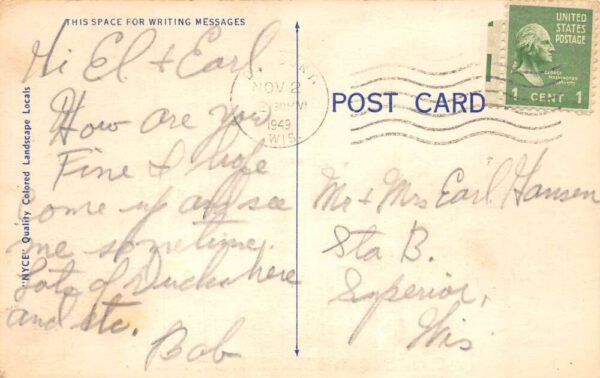 THIS SPACE FOR WRITING MESSAGES
Hi El & Earl.
How are you
Fine I hope
Come up and see
me sometime.
Lots of Ducks here
and etc.
Bob
"NYCE" Quality Colored Landscape Locals
NOV 2
1949
WIS.
POST CARD
UNITED
STATES
POSTAGE
GEORGE
WASHINGTON
1 CENT 1
Mr & Mrs Earl Hansen
Sta B.
Superior,
Wis